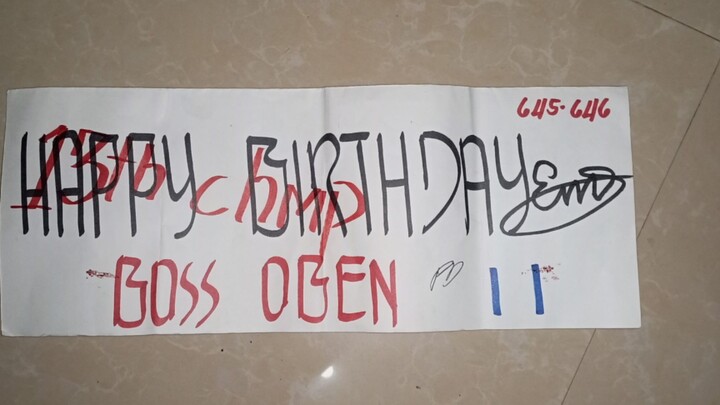 645-646
HAPPY BIRTHDAY
13th chmp
BOSS OBEN
11